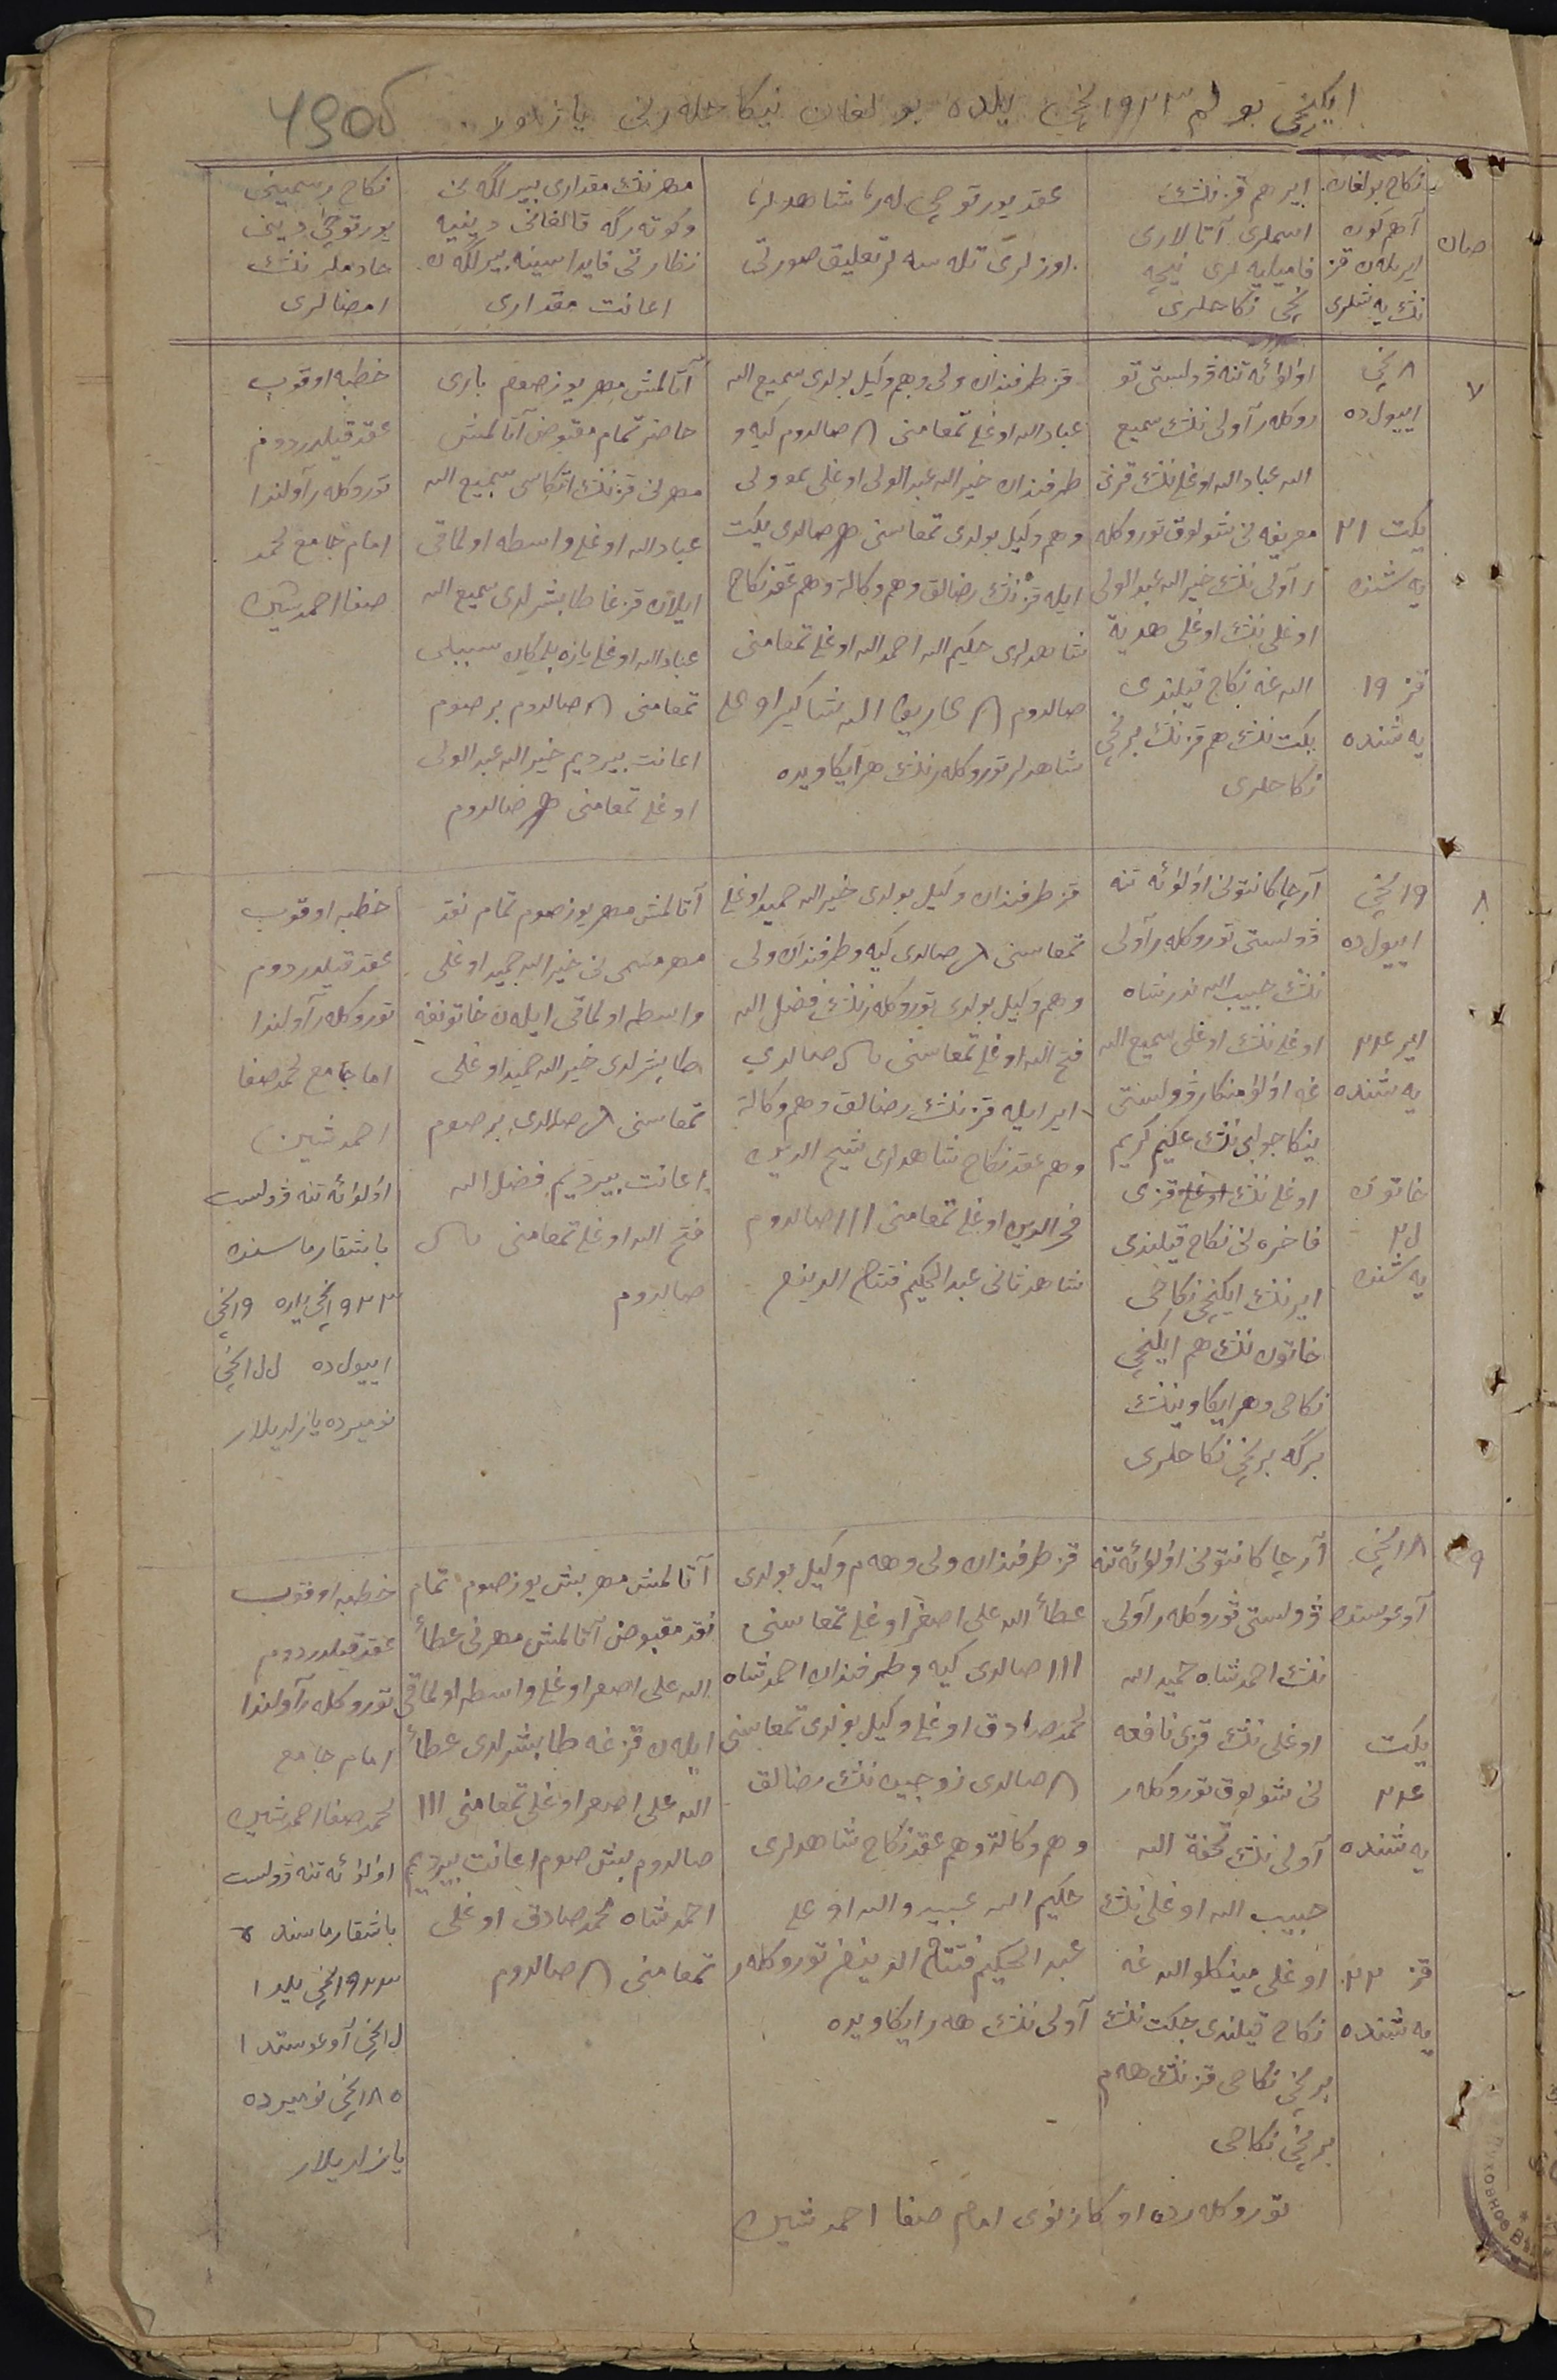 ایکنچی بولم ۱۹۲۳ نچی یلده بولغان نیکاحلەرنی یازولار
490б
صان
نکاح بولغان
آی هم کون
ایر بلەن قز
ننگ یەشلری
ایر هم قزننگ
اسملری آتالاری
فامیلیەلری نیچه
نچی نکاحلری
عقد یورتوچی لەر، شاهدلر،
اوزلری تلەسەلر تعلیق صورتی
مهرننگ مقداری بیرلگەنی
وکوتەرگە قالغانی دینیه
نظارتی فایداسینه بیرلگەن
اعانت مقداری
نکاح رسمینی
یورتوچی دینی
خادملرننگ
امضالری
۷
۸ نچی
اییول ده
یکت ۲۱
یەشنده
قز ۱۹
یەشنده
اولوئەتنه ۋولستی تو
روکلەر آولی ننگ سمیع
الله عبادالله اوغلی ننگ قزی
معریفه نی شولوق توروکله
ر آولی ننگ خیرالله عبدالولی
اوغلی ننگ اوغلی هدیة
الله غه نکاح قیلندی
یکت ننگ هم قزننگ برنچی
نکاحلری
قز طرفندان ولی وهم وکیل بولدی سمیع الله
عبادالله اوغلی تمغامنی صالدوم کیه و
طرفندان خیرالله عبدالولی اوغلی ولی
وهم وکیل بولدی تمغاسنی صالدی یکت
ایله قزننگ رضالق وهم وکالة وهم عقد نکاح
شاهدلری حکیم الله احمدالله اوغلی تمغامنی
صالدوم الله شاکر اوغلی
شاهدلر توروکلەرننگ هر ایکاویده
آتالمش مهر یوز صوم باری
حاضر تمام مقبوض آتالمش
مهرنی قزننگ اتکاسی سمیع الله
عبادالله اوغلی واسطه اولماقی
ایلان قزغا طابشرلدی سمیع الله
عبادالله اوغلی یازه بلمگان سببلی
تمغامنی صالدوم بر صوم
اعانت بیردیم خیرالله عبدالولی
اوغلی تمغامنی صالدوم
خطبه اوقوب
عقد قیلدردوم
توروکلەر آولندا
امام جامع محمد
صفا احمدشین
۸
۱۹ نچی
اییول ده
ایر ۲۴
یەشنده
خاتون
۲۰
یەشنده
آرچا کانتونی اولوئەتنه
ۋولستی توروکلەر آولی
ننگ حبیب الله ندرشاه
اوغلی ننگ اوغلی سمیع الله
غه اولومنگار ۋولستی
ینکا جوابی ننگ علیم کریم
اوغلی ننگ قزی
فاخره نی نکاح قیلندی
ایرننگ ایکنچی نکاحی
خاتون ننگ هم ایکنچی
نکاحی وهر ایکاوینگ
برگه برنچی نکاحلری
قز طرفندان وکیل بولدی خیرالله حمید اوغلی
تمغاسنی صالدی کیه و طرفندان ولی
وهم وکیل بولدی توروکلەرننگ فضل الله
فتح الله اوغلی تمغاسنی صالدی
ایر ایله قزننگ رضالق وهم وکالة
وهم عقد نکاح شاهدلری شیخ الدین
فخرالدین اوغلی تمغامنی ااا صالدوم
شاهد ثانی عبدالحکیم فتتاح الدینف
آتالمش مهر یوز صوم تمام نقد
مهر مسمی نی خیرالله حمید اوغلی
واسطه اولماقی ایلەن خاتونغه
طابشرلدی خیرالله حمید اوغلی
تمغاسنی صالدی بر صوم
اعانت بیردیم فضل الله
فتح الله اوغلی تمغامنی
صالدوم
خطبه اوقوب
عقد قیلدردوم
توروکلەر آولندا
امام جامع محمدصفا
احمدشین
اولوئەتنه ۋولست
باشقارماسنده
۱۹۲۳ نچی یلده ۱۹ نچی
اییول ده نچی
نومیرده یازلدیلار
۹
۱۸ نچی
آوغوستده
یکت
۲۴
یەشنده
قز ۲۲
یەشنده
آرچا کانتونی اولوئەتنه
ۋولستی توروکلەر آولی
ننگ احمدشاه حمیدالله
اوغلی ننگ قزی نافعه
نی شولوق توروکلەر
آولی ننگ تحفة الله
حبیب الله اوغلی ننگ
اوغلی مینکلوالله غه
نکاح قیلندی یکت ننگ
برنچی نکاحی قزننگ هەم
برنچی نکاحی
قز طرفندان ولی وهەم وکیل بولدی
عطاء الله علی اصغر اوغلی تمغاسنی
ااا صالدی کیه و طرفندان احمدشاه
محمدصادق اوغلی وکیل بولدی تمغاسنی
صالدی زوجین ننگ رضالق
وهم وکالة وهم عقد نکاح شاهدلری
حکیم الله عبیدوالله اوغلی
عبدالحکیم فتتاح الدینف توروکلەر
آولی ننگ هەر ایکاویده
آتالمش مهر بیش یوز صوم تمام
نقد مقبوض آتالمش مهرنی عطاء
الله علی اصغر اوغلی واسطه اولماقی
ایلەن قزغه طابشرلدی عطاء
الله علی اصغر اوغلی تمغامنی ااا
صالدوم بیش صوم اعانت بیردیم
احمدشاه محمدصادق اوغلی
تمغامنی صالدوم
خطبه اوقوب
عقد قیلدردوم
توروکلەر آولندا
امام جامع
محمدصفا احمدشین
اولوئەتنه ۋولست
باشقارماسنده
۱۹۲۳ نچی یلدا
نچی آوغوستدا
۱۸۵ نچی نومیرده
یازلدیلار
توروکلەرده اوکازنوی امام صفا احمدشین